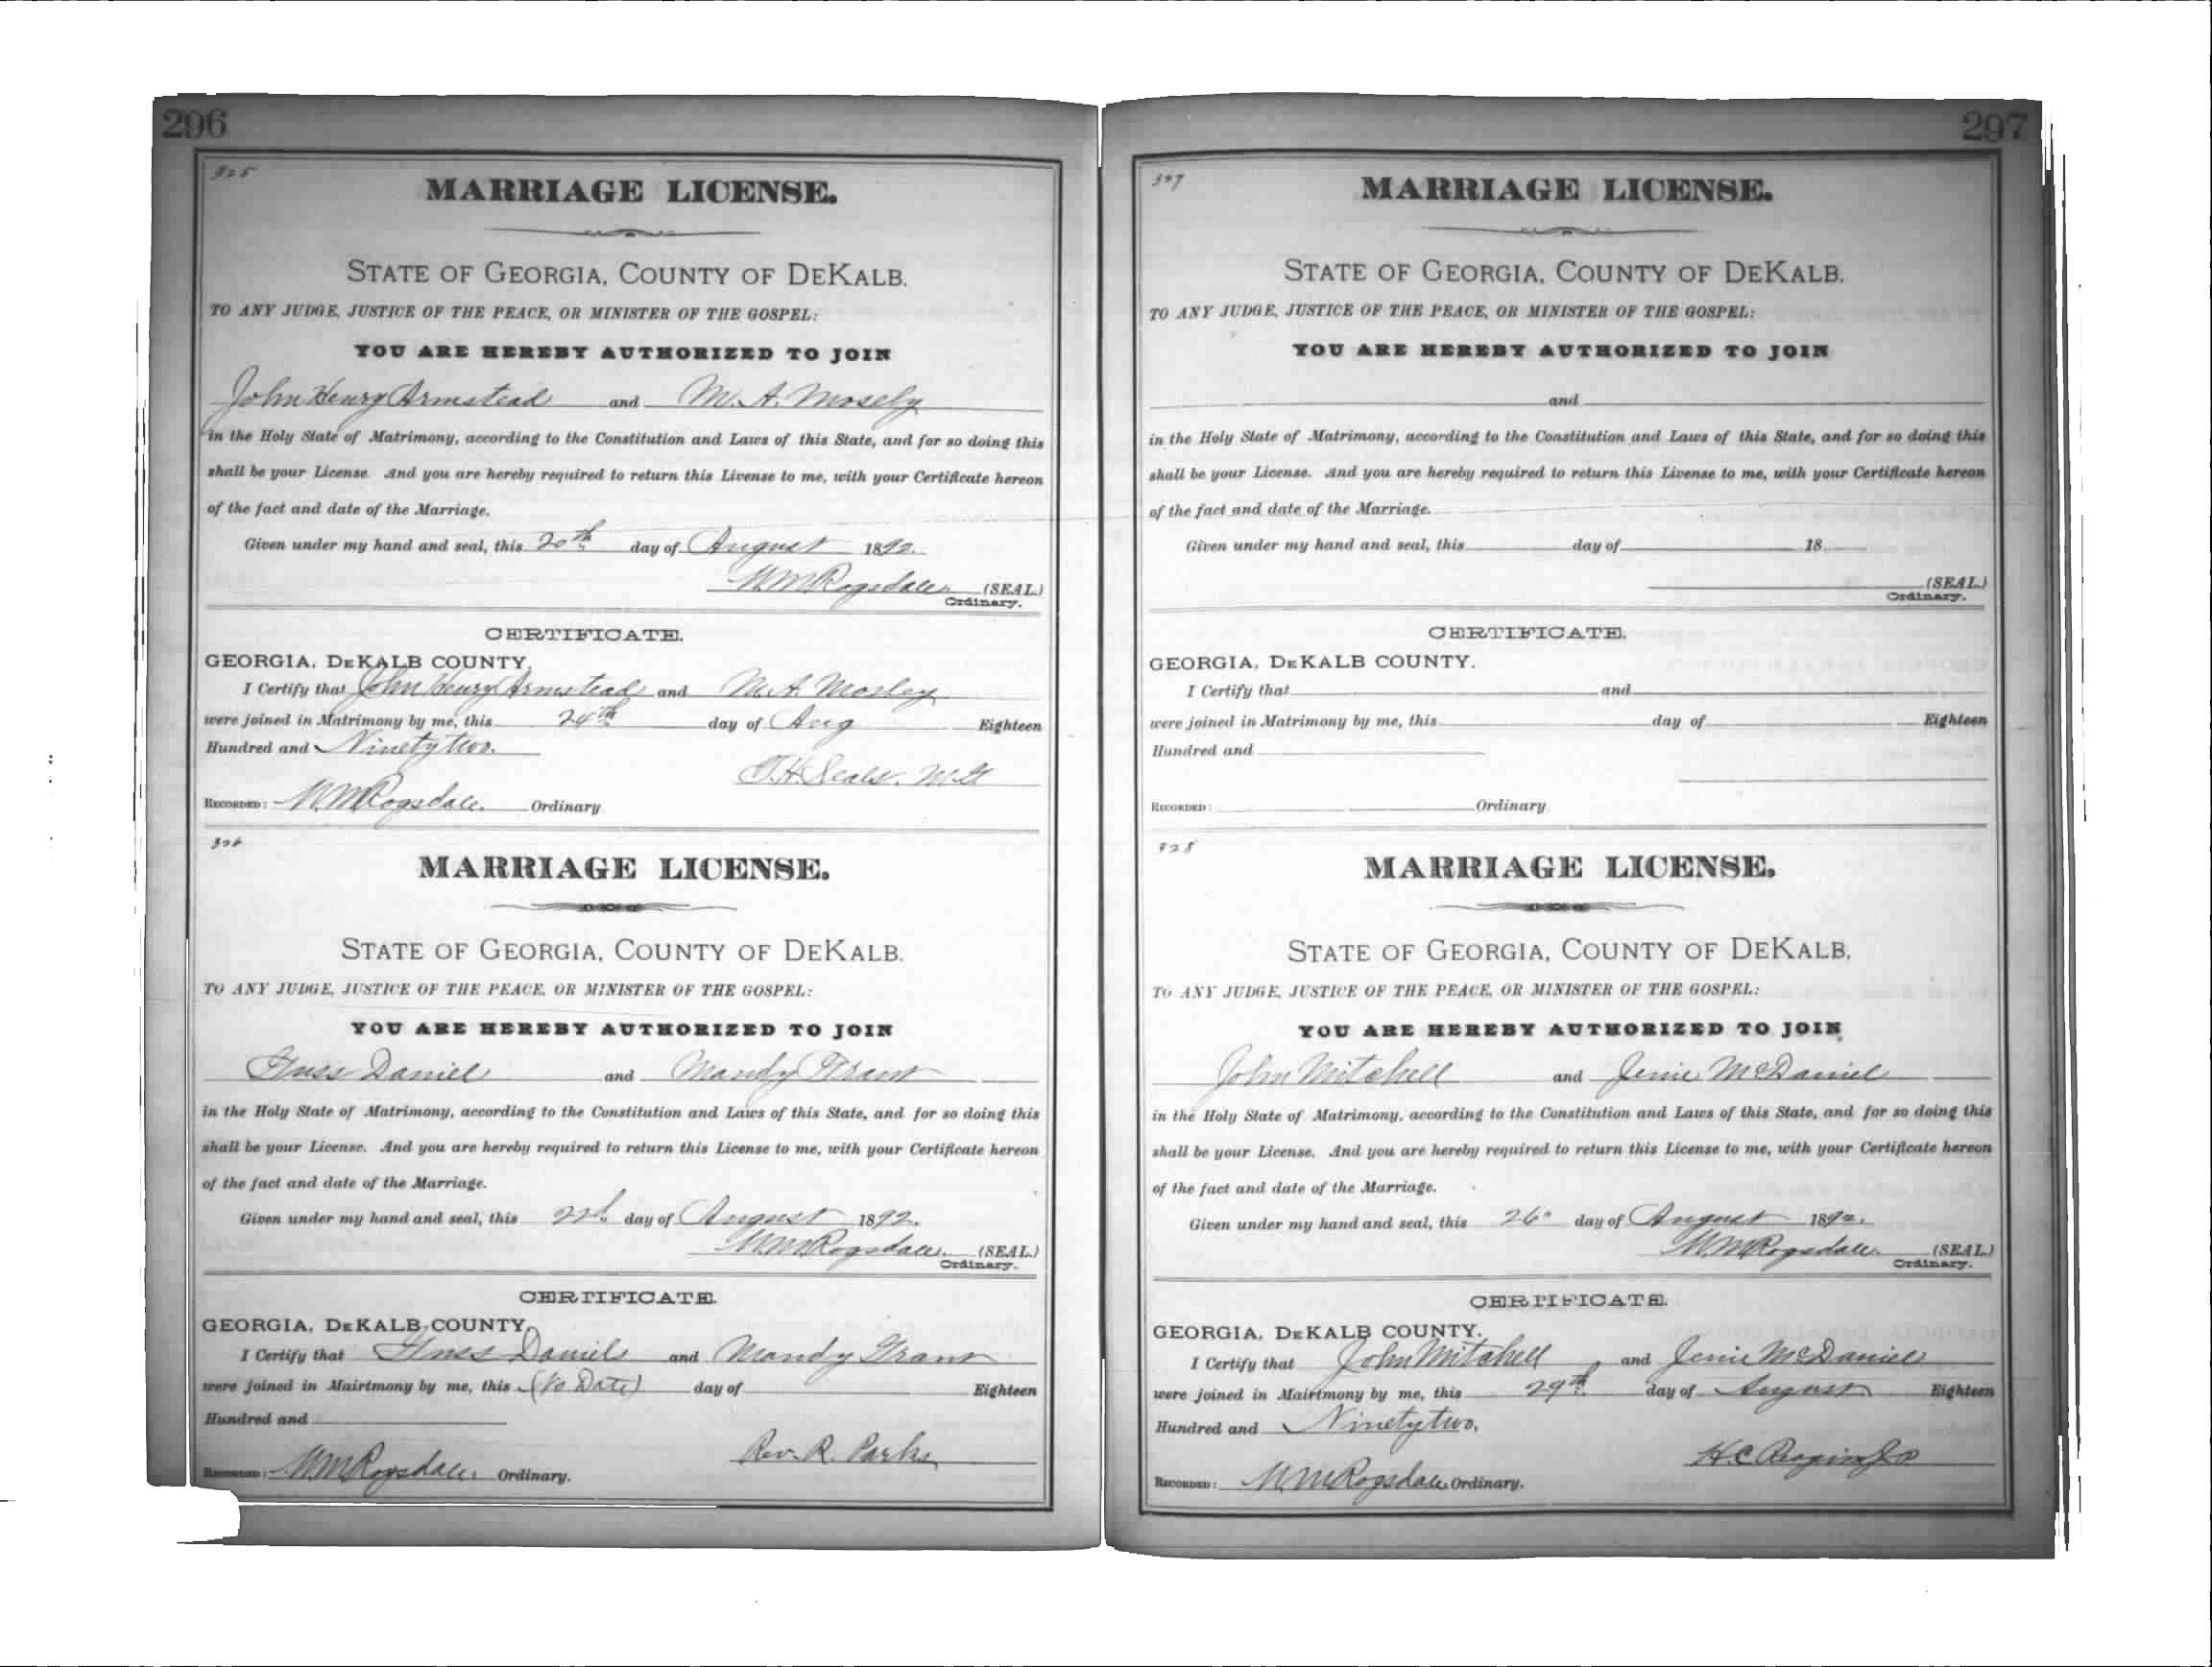 296
325
MARRIAGE LICENSE.
STATE OF GEORGIA, COUNTY OF DEKALB.
TO ANY JUDGE, JUSTICE OF THE PEACE, OR MINISTER OF THE GOSPEL:
YOU ARE HEREBY AUTHORIZED TO JOIN
John Henry Armstead and M. A. Mosely
in the Holy State of Matrimony, according to the Constitution and Laws of this State, and for so doing this
shall be your License. And you are hereby required to return this License to me, with your Certificate hereon
of the fact and date of the Marriage.
Given under my hand and seal, this 20th day of August 1892.
W.M. Ragsdale. (SEAL.)
Ordinary.
CERTIFICATE.
GEORGIA, DEKALB COUNTY.
I Certify that John Henry Armstead and M. A. Mosley
were joined in Matrimony by me, this 24th day of Aug Eighteen
Hundred and Ninety two.
J. H. Seals. M.G
RECORDED: W.M. Ragsdale. Ordinary
326
MARRIAGE LICENSE.
STATE OF GEORGIA, COUNTY OF DEKALB.
TO ANY JUDGE, JUSTICE OF THE PEACE, OR MINISTER OF THE GOSPEL:
YOU ARE HEREBY AUTHORIZED TO JOIN
Guss Daniel and Mandy Grant
in the Holy State of Matrimony, according to the Constitution and Laws of this State, and for so doing this
shall be your License. And you are hereby required to return this License to me, with your Certificate hereon
of the fact and date of the Marriage.
Given under my hand and seal, this 22d. day of August 1892.
W.M. Ragsdale. (SEAL.)
Ordinary.
CERTIFICATE.
GEORGIA, DEKALB COUNTY.
I Certify that Guss Daniels and Mandy Grant
were joined in Mairtmony by me, this (No Date) day of Eighteen
Hundred and
Rev. R. Parks
RECORDED: W.M. Ragsdale. Ordinary.
297
327
MARRIAGE LICENSE.
STATE OF GEORGIA, COUNTY OF DEKALB.
TO ANY JUDGE, JUSTICE OF THE PEACE, OR MINISTER OF THE GOSPEL:
YOU ARE HEREBY AUTHORIZED TO JOIN
and
in the Holy State of Matrimony, according to the Constitution and Laws of this State, and for so doing this
shall be your License. And you are hereby required to return this License to me, with your Certificate hereon
of the fact and date of the Marriage.
Given under my hand and seal, this day of 18
(SEAL.)
Ordinary.
CERTIFICATE.
GEORGIA, DEKALB COUNTY.
I Certify that and
were joined in Matrimony by me, this day of Eighteen
Hundred and
RECORDED: Ordinary
328
MARRIAGE LICENSE.
STATE OF GEORGIA, COUNTY OF DEKALB.
TO ANY JUDGE, JUSTICE OF THE PEACE, OR MINISTER OF THE GOSPEL:
YOU ARE HEREBY AUTHORIZED TO JOIN
John Mitchell and Jenie McDaniel
in the Holy State of Matrimony, according to the Constitution and Laws of this State, and for so doing this
shall be your License. And you are hereby required to return this License to me, with your Certificate hereon
of the fact and date of the Marriage.
Given under my hand and seal, this 26" day of August 1892.
W.M. Ragsdale. (SEAL.)
Ordinary.
CERTIFICATE.
GEORGIA, DEKALB COUNTY.
I Certify that John Mitchell, and Jenie McDaniel
were joined in Mairtmony by me, this 29th. day of August Eighteen
Hundred and Ninety two.
H. C.
RECORDED: W.M. Ragsdale Ordinary.